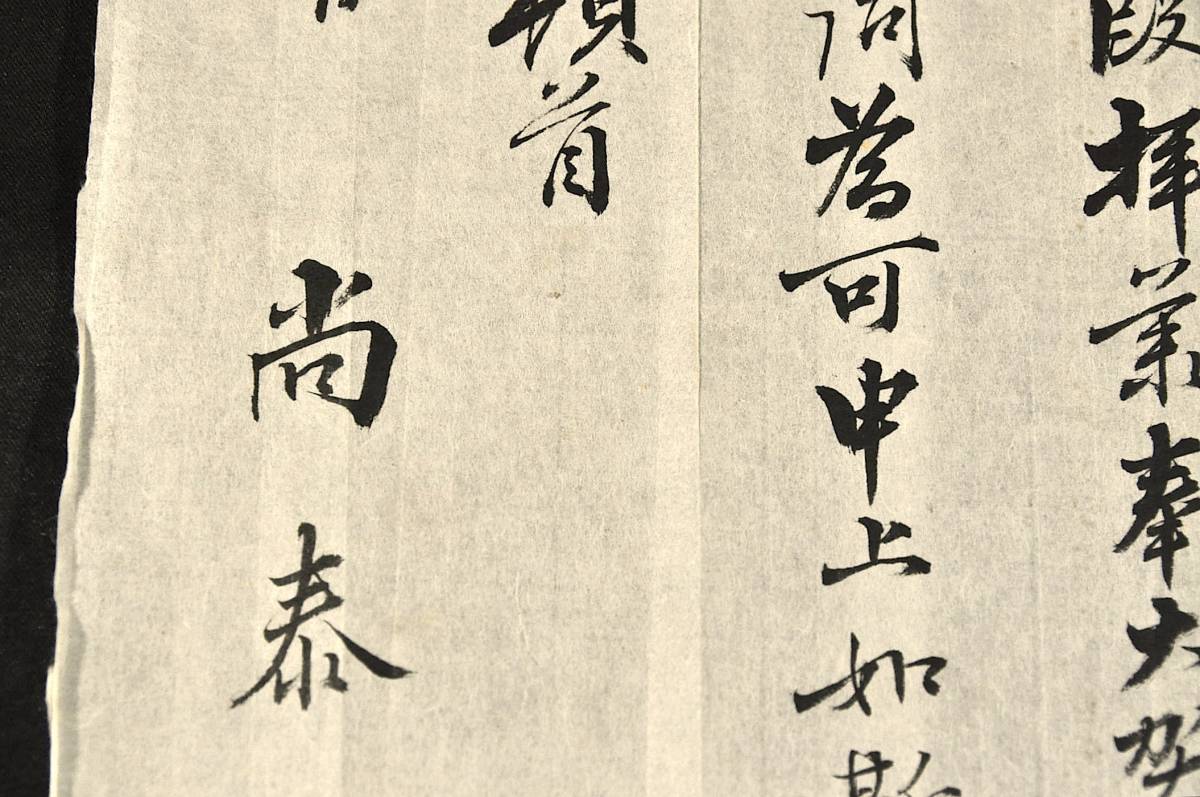 段拝業奉大賀
詞為可申上如斯
頓首
尚泰